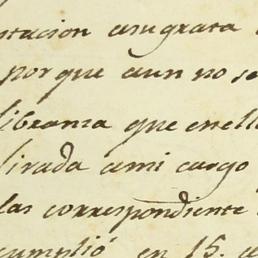 ntacion asugrata
porque aun no se
libranza que enell
lirada ami cargo
las correspondiente
cumplió en 15. de